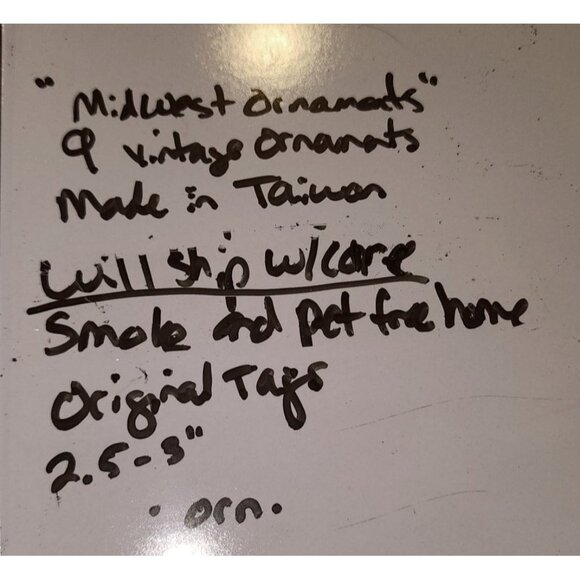 "Midwest Ornaments"
9 vintage Ornamats
Made in Taiwan
will ship w/care
Smoke and pet free home
Original Tags
2.5-3"
. orn.